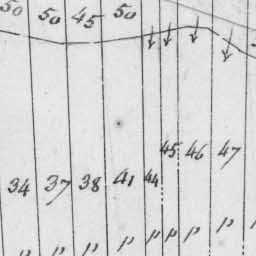 50 50 45 50
45 46 47
34 37 38 41 44
p p p p p p p p